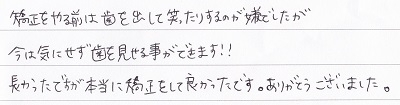 矯正をやる前は歯を出して笑ったりするのが嫌でしたが
今は気にせず歯を見せる事ができます!!
長かったですが本当に矯正をして良かったです。ありがとうございました。